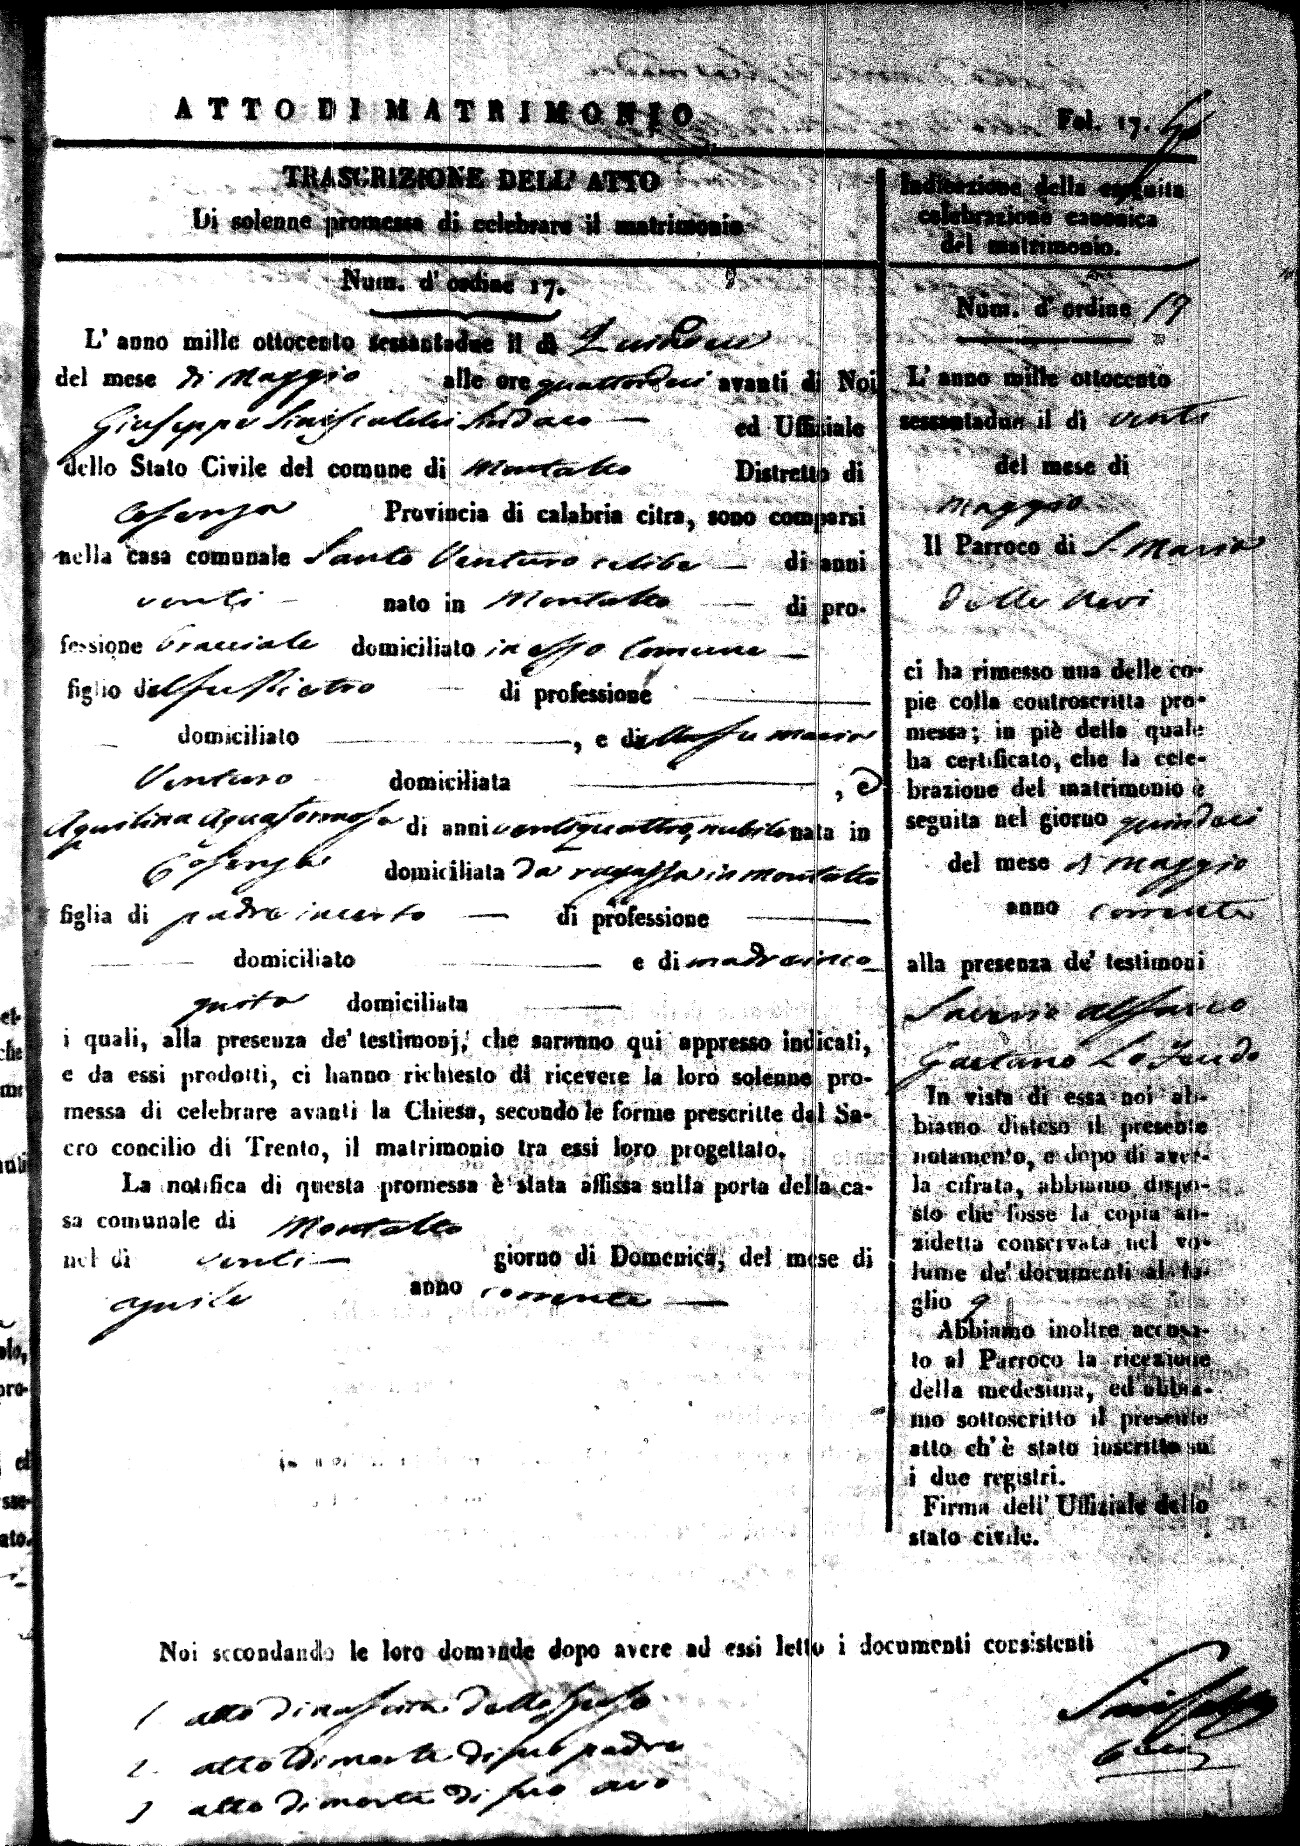 ATTO DI MATRIMONIO
Fol. 17.
TRASCRIZIONE DELL' ATTO
Di solenne promessa di celebrare il matrimonio
Num. d' ordine 17.
L' anno mille ottocento sessantadue il dì Quindici
del mese di Maggio alle ore quattordici avanti di Noi
Giuseppe Siniscalchi Sindaco ed Uffiziale
dello Stato Civile del comune di Montalto Distretto di
Cosenza Provincia di calabria citra, sono comparsi
nella casa comunale Santo Venturo celibe di anni
venti nato in Montalto di pro-
fessione bracciale domiciliato in esso Comune
figlio del fu Pietro di professione
domiciliato , e della fu Maria
Venturo domiciliata , e
Aquilina Acquaformosa di anni ventiquattro, nubile nata in
Cosenza domiciliata da ragazza in Montalto
figlia di padre incerto di professione
domiciliato e di madre inco-
gnita domiciliata
i quali, alla presenza de' testimonj, che saranno qui appresso indicati,
e da essi prodotti, ci hanno richiesto di ricevere la loro solenne pro-
messa di celebrare avanti la Chiesa, secondo le forme prescritte dal Sa-
cro concilio di Trento, il matrimonio tra essi loro progettato.
La notifica di questa promessa è stata affissa sulla porta della ca-
sa comunale di Montalto
nel dì venti giorno di Domenica, del mese di
aprile anno corrente
Indicazione della eseguita
celebrazione canonica
del matrimonio.
Num. d' ordine 17
L' anno mille ottocento
sessantadue il dì venti
del mese di
Maggio
Il Parroco di S. Maria
delle Nevi
ci ha rimesso una delle co-
pie colla controscritta pro-
messa; in piè della quale
ha certificato, che la cele-
brazione del matrimonio è
seguita nel giorno quindici
del mese di Maggio
anno corrente
alla presenza de' testimoni
Saverio
Gaetano Lo Feudo
In vista di essa noi ab-
biamo disteso il presente
notamento, e dopo di aver-
la cifrata, abbiamo dispo-
sto che fosse la copia an-
zidetta conservata nel vo-
lume de' documenti al fo-
glio 9
Abbiamo inoltre accusa-
to al Parroco la ricezione
della medesima, ed abbia-
mo sottoscritto il presente
atto ch' è stato inscritto su
i due registri.
Firma dell' Uffiziale dello
stato civile.
Noi secondando le loro domande dopo avere ad essi letto i documenti consistenti
1 atto di nascita dello sposo
2. atto di morte di suo padre
3 atto di morte di suo avo